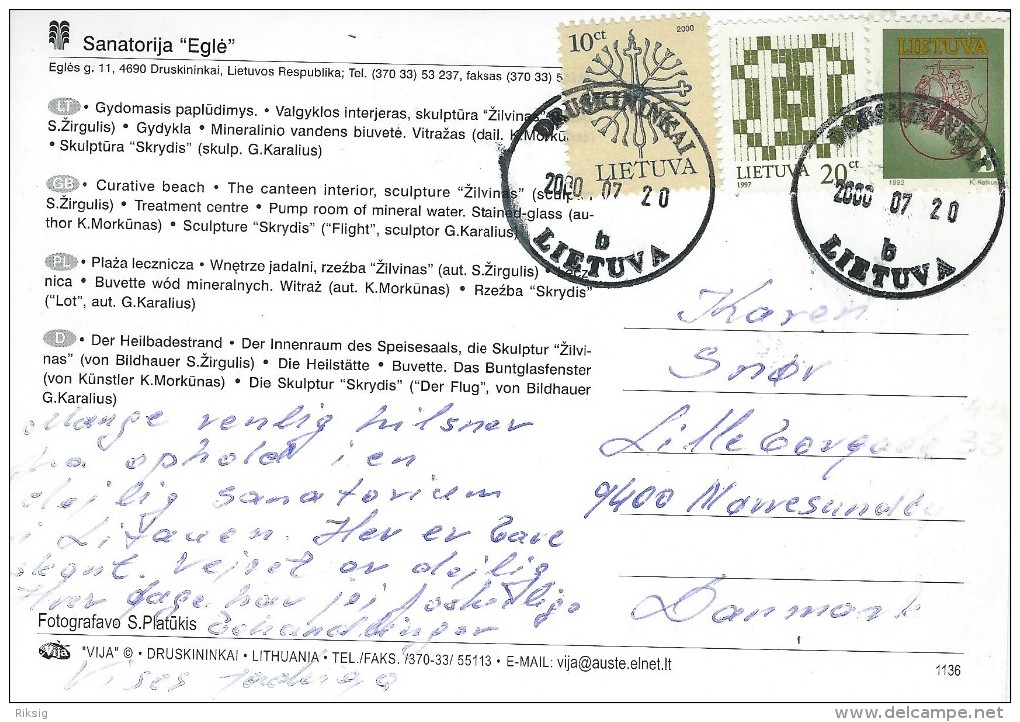 Sanatorija "Eglė"
Eglės g. 11, 4690 Druskininkai, Lietuvos Respublika; Tel. (370 33) 53 237, faksas (370 33) 5
LT • Gydomasis paplūdimys. • Valgyklos interjeras, skulptūra "Žilvinas"
S.Žirgulis) • Gydykla • Mineralinio vandens biuvetė. Vitražas (dail. K.Morkūnas
• Skulptūra "Skrydis" (skulp. G.Karalius)
GB • Curative beach • The canteen interior, sculpture "Žilvinas" (sculp.
S.Žirgulis) • Treatment centre • Pump room of mineral water. Stained-glass (au-
thor K.Morkūnas) • Sculpture "Skrydis" ("Flight", sculptor G.Karalius)
PL • Plaża lecznicza • Wnętrze jadalni, rzeźba "Žilvinas" (aut. S.Žirgulis) • Lecz-
nica • Buvette wód mineralnych. Witraż (aut. K.Morkūnas) • Rzeźba "Skrydis"
("Lot", aut. G.Karalius)
D • Der Heilbadestrand • Der Innenraum des Speisesaals, die Skulptur "Žilvi-
nas" (von Bildhauer S.Žirgulis) • Die Heilstätte • Buvette. Das Buntglasfenster
(von Künstler K.Morkūnas) • Die Skulptur "Skrydis" ("Der Flug", von Bildhauer
G.Karalius)
Mange venlig hilsner
fra ophold i en
dejlig sanatorium
i Litauen. Her er bare
skønt. Vejret er dejlig
Hver dage har jej forskellige
behandlinger
Fotografavo S.Platūkis
"VIJA" © • DRUSKININKAI • LITHUANIA • TEL./FAKS. /370-33/ 55113 • E-MAIL: vija@auste.elnet.lt
Vija
1136
Vises
10 ct
2000
LIETUVA
LIETUVA
1997
20 ct
LIETUVA
B
1992
DRUSKININKAI
2000 07 20
b
LIETUVA
DRUSKININKAI
2000 07 20
b
LIETUVA
Karen
Snør
Lille Borgade 33
9400 Nørresundby
Danmark
Riksig
delcampe.net